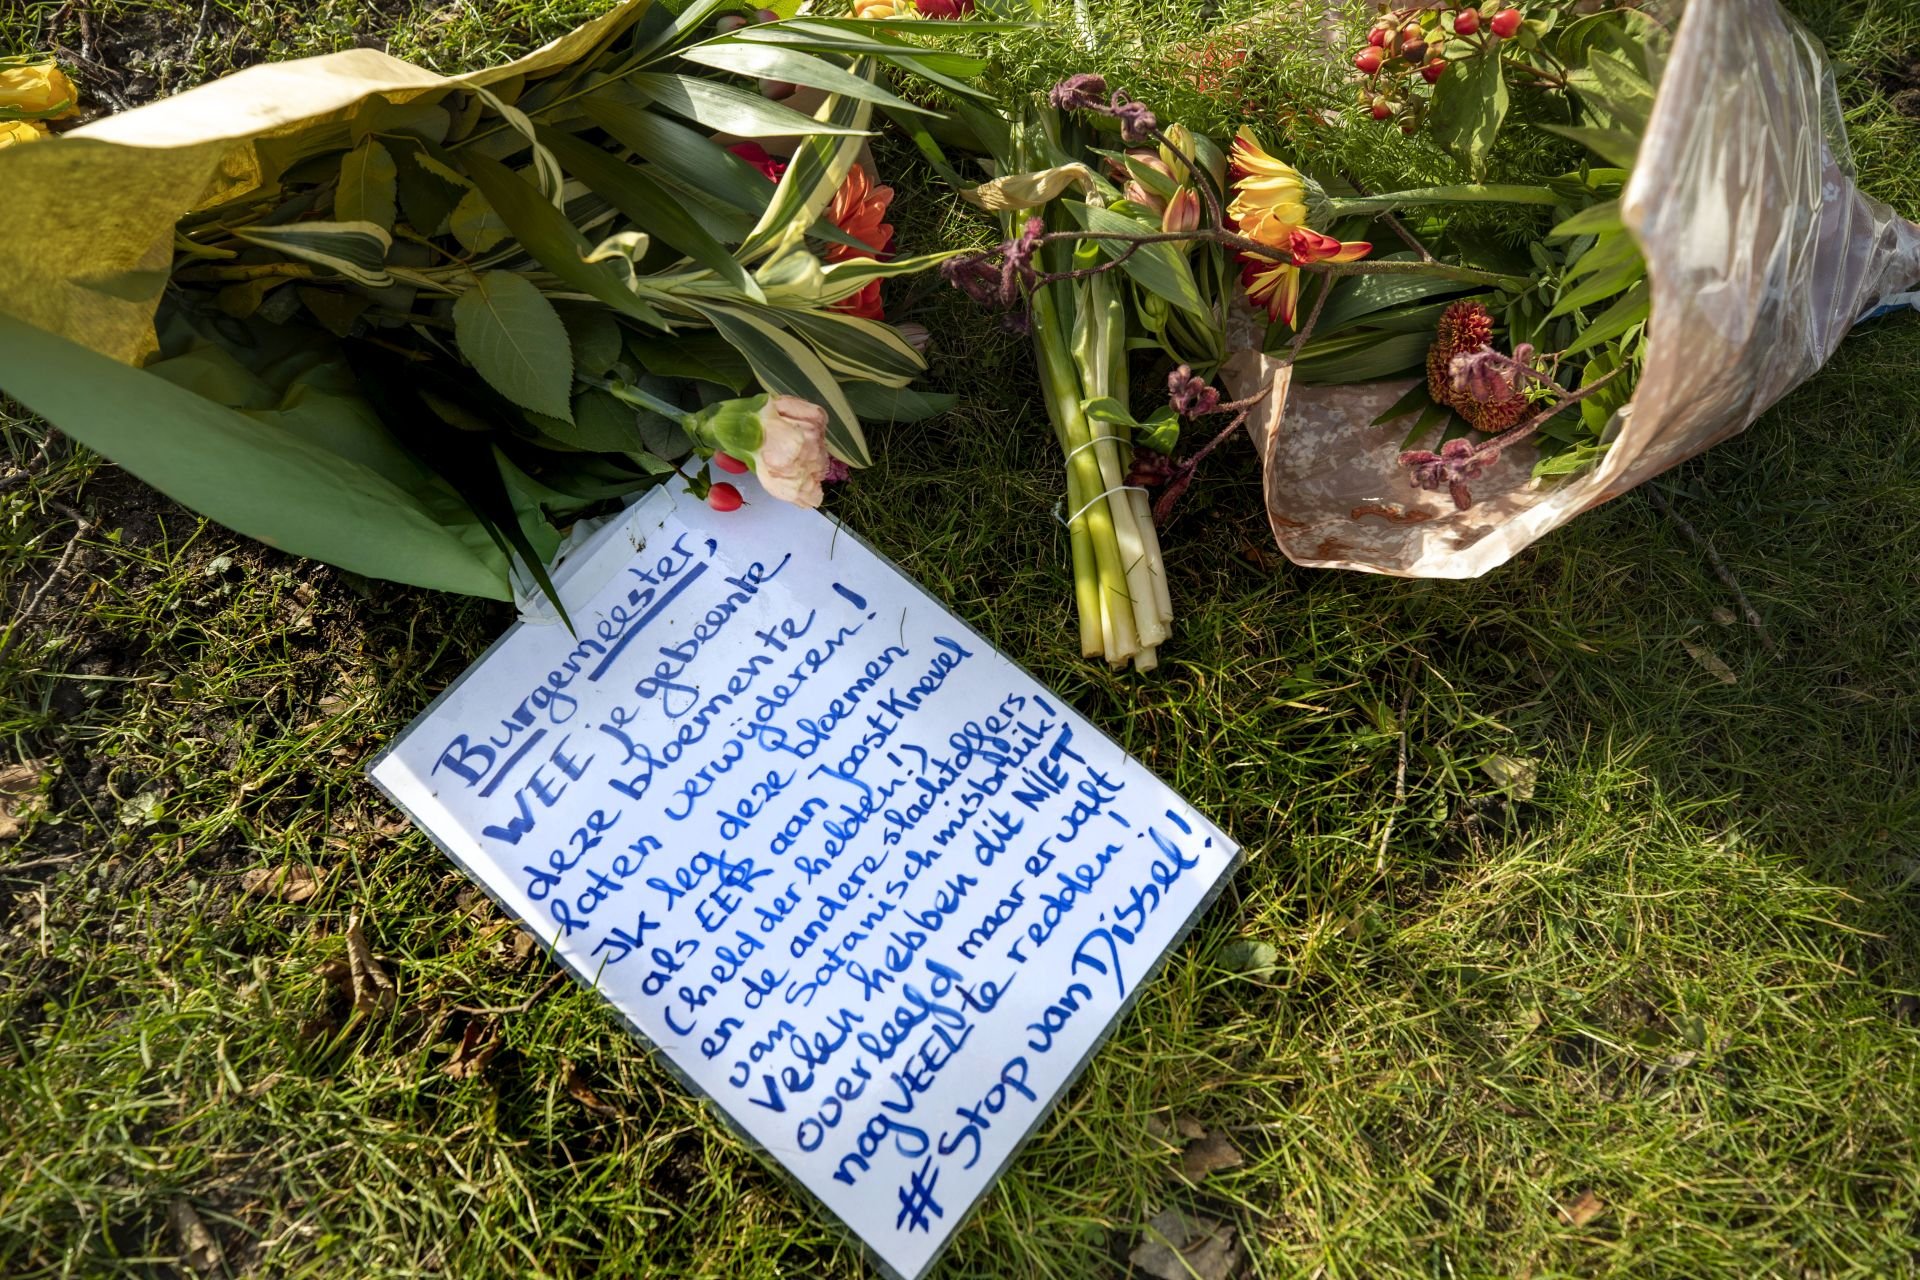 Burgemeester,
WEE je gebeente
deze bloemen te
laten verwijderen!
Ik leg deze bloemen
als EER aan Joost Knevel
(held der helden!)
en de andere slachtoffers
van Satanisch misbruik!
Velen hebben dit NIET
overleefd maar er valt
nog VEEL te redden!
# Stop van Dissel!